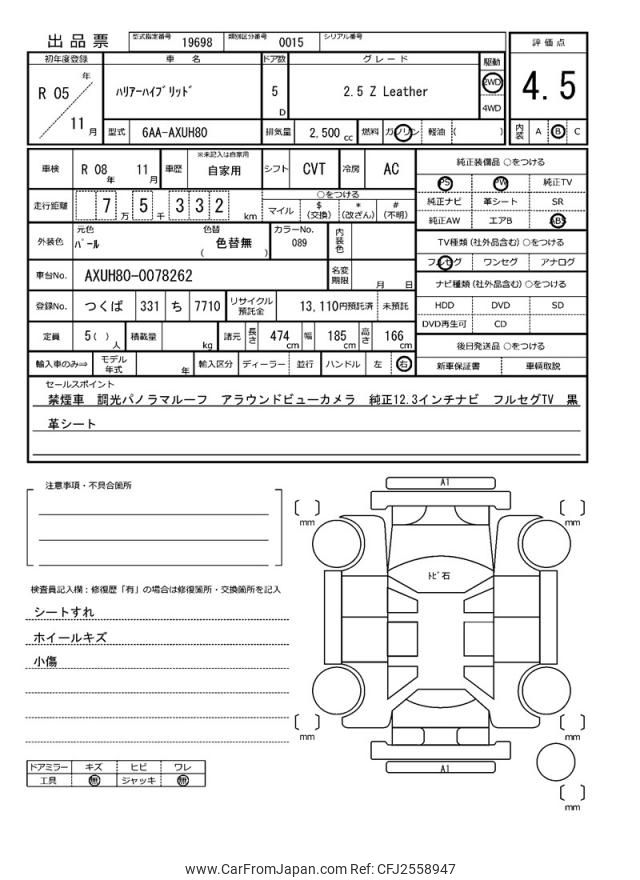 出品票 型式指定番号 19698 類別区分番号 0015 シリアル番号
初年度登録 車名 ドア数 グレード 駆動 評価点
R 05 年 11 月 ﾊﾘｱｰﾊｲﾌﾞﾘｯﾄﾞ 5 D 2.5 Z Leather 2WD 4WD 4.5
型式 6AA-AXUH80 排気量 2,500 cc 燃料 ガソリン 軽油 ( ) 内装 A B C
車検 R 08 年 11 月 車歴 ※未記入は自家用 自家用 シフト CVT 冷房 AC
走行距離 7 万 5 千 3 3 2 km ○をつける
マイル $ (交換) * (改ざん) # (不明)
外装色 元色 ﾊﾟｰﾙ 色替 ( 色替無 ) カラーNo. 089 内装色
車台No. AXUH80-0078262 名変期限 月 日
登録No. つくば 331 ち 7710 リサイクル預託金 13,110円預託済 未預託
定員 5( ) 人 積載量 kg 諸元 長さ 474 cm 幅 185 cm 高さ 166 cm
輸入車のみ⇒ モデル年式 年 輸入区分 ディーラー 並行 ハンドル 左 右
純正装備品 ○をつける
PS PW 純正TV
純正ナビ 革シート SR
純正AW エアB ABS
TV種類 (社外品含む) ○をつける
フルセグ ワンセグ アナログ
ナビ種類 (社外品含む) ○をつける
HDD DVD SD
DVD再生可 CD
後日発送品 ○をつける
新車保証書 車輌取説
セールスポイント
禁煙車 調光パノラマルーフ アラウンドビューカメラ 純正12.3インチナビ フルセグTV 黒
革シート
注意事項・不具合箇所
検査員記入欄：修復歴「有」の場合は修復箇所・交換箇所を記入
シートすれ
ホイールキズ
小傷
ドアミラー キズ ヒビ ワレ
工具 無 ジャッキ 無
A1
[ ] mm
[ ] mm
ﾄﾋﾞ石
[ ] mm
[ ] mm
A1
[ ] mm
www.CarFromJapan.com Ref: CFJ2558947